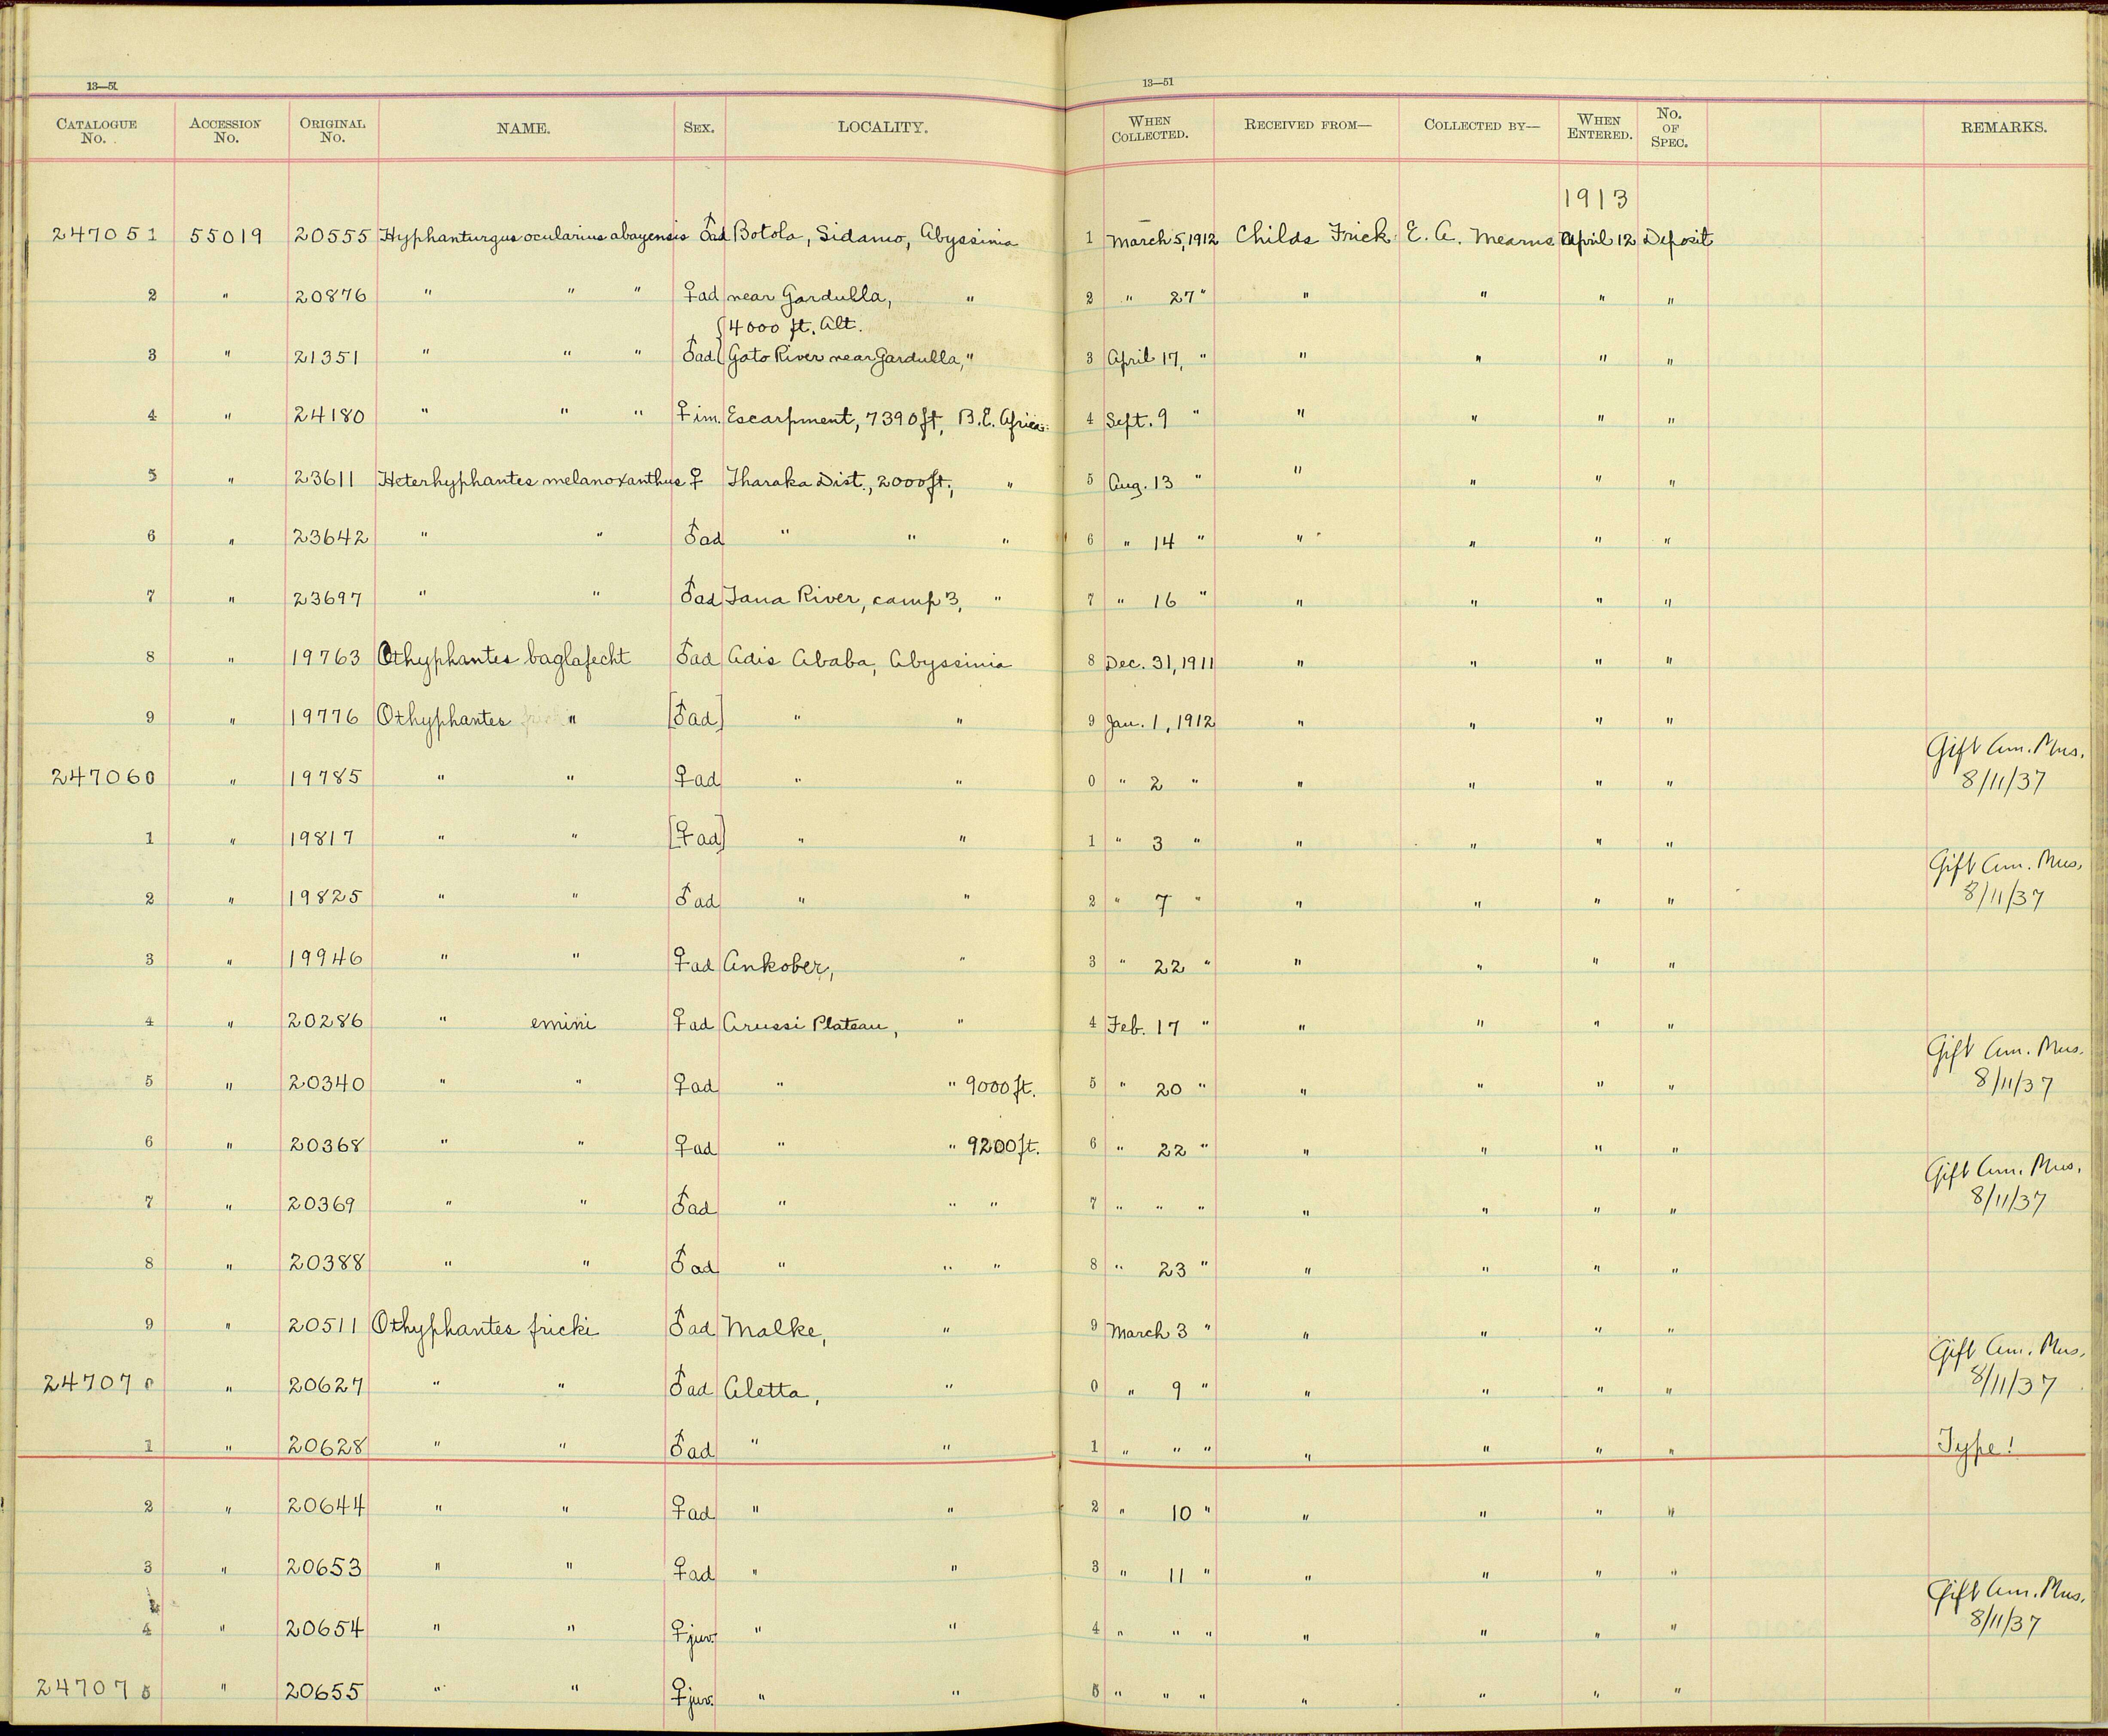 13—51 13—51
CATALOGUE No. ACCESSION No. ORIGINAL No. NAME. SEX. LOCALITY. WHEN COLLECTED. RECEIVED FROM— COLLECTED BY— WHEN ENTERED. No. OF SPEC. REMARKS.
1913
247051 55019 20555 Hyphanturgus ocularius abayensis ♂ad Botola, Sidamo, Abyssinia 1 March 5, 1912 Childs Frick E. A. Mearns April 12 Deposit
2 " 20876 " " " ♀ad near Gardulla, " 2 " 27 " " " " "
{4000 ft. Alt.
3 " 21351 " " " ♂ad {Gato River near Gardulla, " 3 April 17, " " " " "
4 " 24180 " " " ♀im. Escarpment, 7390 ft, B.E. Africa. 4 Sept. 9 " " " " "
5 " 23611 Heterhyphantes melanoxanthus ♀ Tharaka Dist., 2000 ft., " 5 Aug. 13 " " " " "
6 " 23642 " " ♂ad " " " 6 " 14 " " " " "
7 " 23697 " " ♂ad Tana River, camp 3, " 7 " 16 " " " " "
8 " 19763 Othyphantes baglafecht ♂ad Adis Ababa, Abyssinia 8 Dec. 31, 1911 " " " "
9 " 19776 Othyphantes " [♂ad] " " 9 Jan. 1, 1912 " " " "
Gift Am. Mus.
247060 " 19785 " " ♀ad " " 0 " 2 " " " " " 8/11/37
1 " 19817 " " [♀ad] " " 1 " 3 " " " " "
Gift Am. Mus.
2 " 19825 " " ♂ad " " 2 " 7 " " " " " 8/11/37
3 " 19946 " " ♀ad Ankober, " 3 " 22 " " " " "
4 " 20286 " emini ♀ad Arussi Plateau, " 4 Feb. 17 " " " " "
Gift Am. Mus.
5 " 20340 " " ♀ad " " 9000 ft. 5 " 20 " " " " " 8/11/37
6 " 20368 " " ♀ad " " 9200 ft. 6 " 22 " " " " "
Gift Am. Mus.
7 " 20369 " " ♂ad " " " 7 " " " " " " " 8/11/37
8 " 20388 " " ♂ad " " " 8 " 23 " " " " "
9 " 20511 Othyphantes fricki ♂ad Malke, " 9 March 3 " " " " "
Gift Am. Mus.
247070 " 20627 " " ♂ad Aletta, " 0 " 9 " " " " " 8/11/37
1 " 20628 " " ♂ad " " 1 " " " " " " " Type!
2 " 20644 " " ♀ad " " 2 " 10 " " " " "
3 " 20653 " " ♀ad " " 3 " 11 " " " " "
Gift Am. Mus.
4 " 20654 " " ♀juv. " " 4 " " " " " " " 8/11/37
247075 " 20655 " " ♀juv. " " 5 " " " " " " "